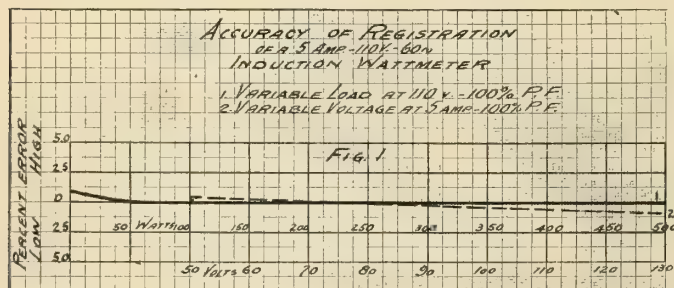 ACCURACY OF REGISTRATION
OF A 5 AMP-110V.-60~
INDUCTION WATTMETER
1. VARIABLE LOAD AT 110 V.-100% P.F.
2. VARIABLE VOLTAGE AT 5 AMP-100% P.F.
FIG. 1
PERCENT ERROR
LOW HIGH
5.0
2.5
0
2.5
5.0
1
2
50 WATTS 100 150 200 250 300 350 400 450 500
50 VOLTS 60 70 80 90 100 110 120 130